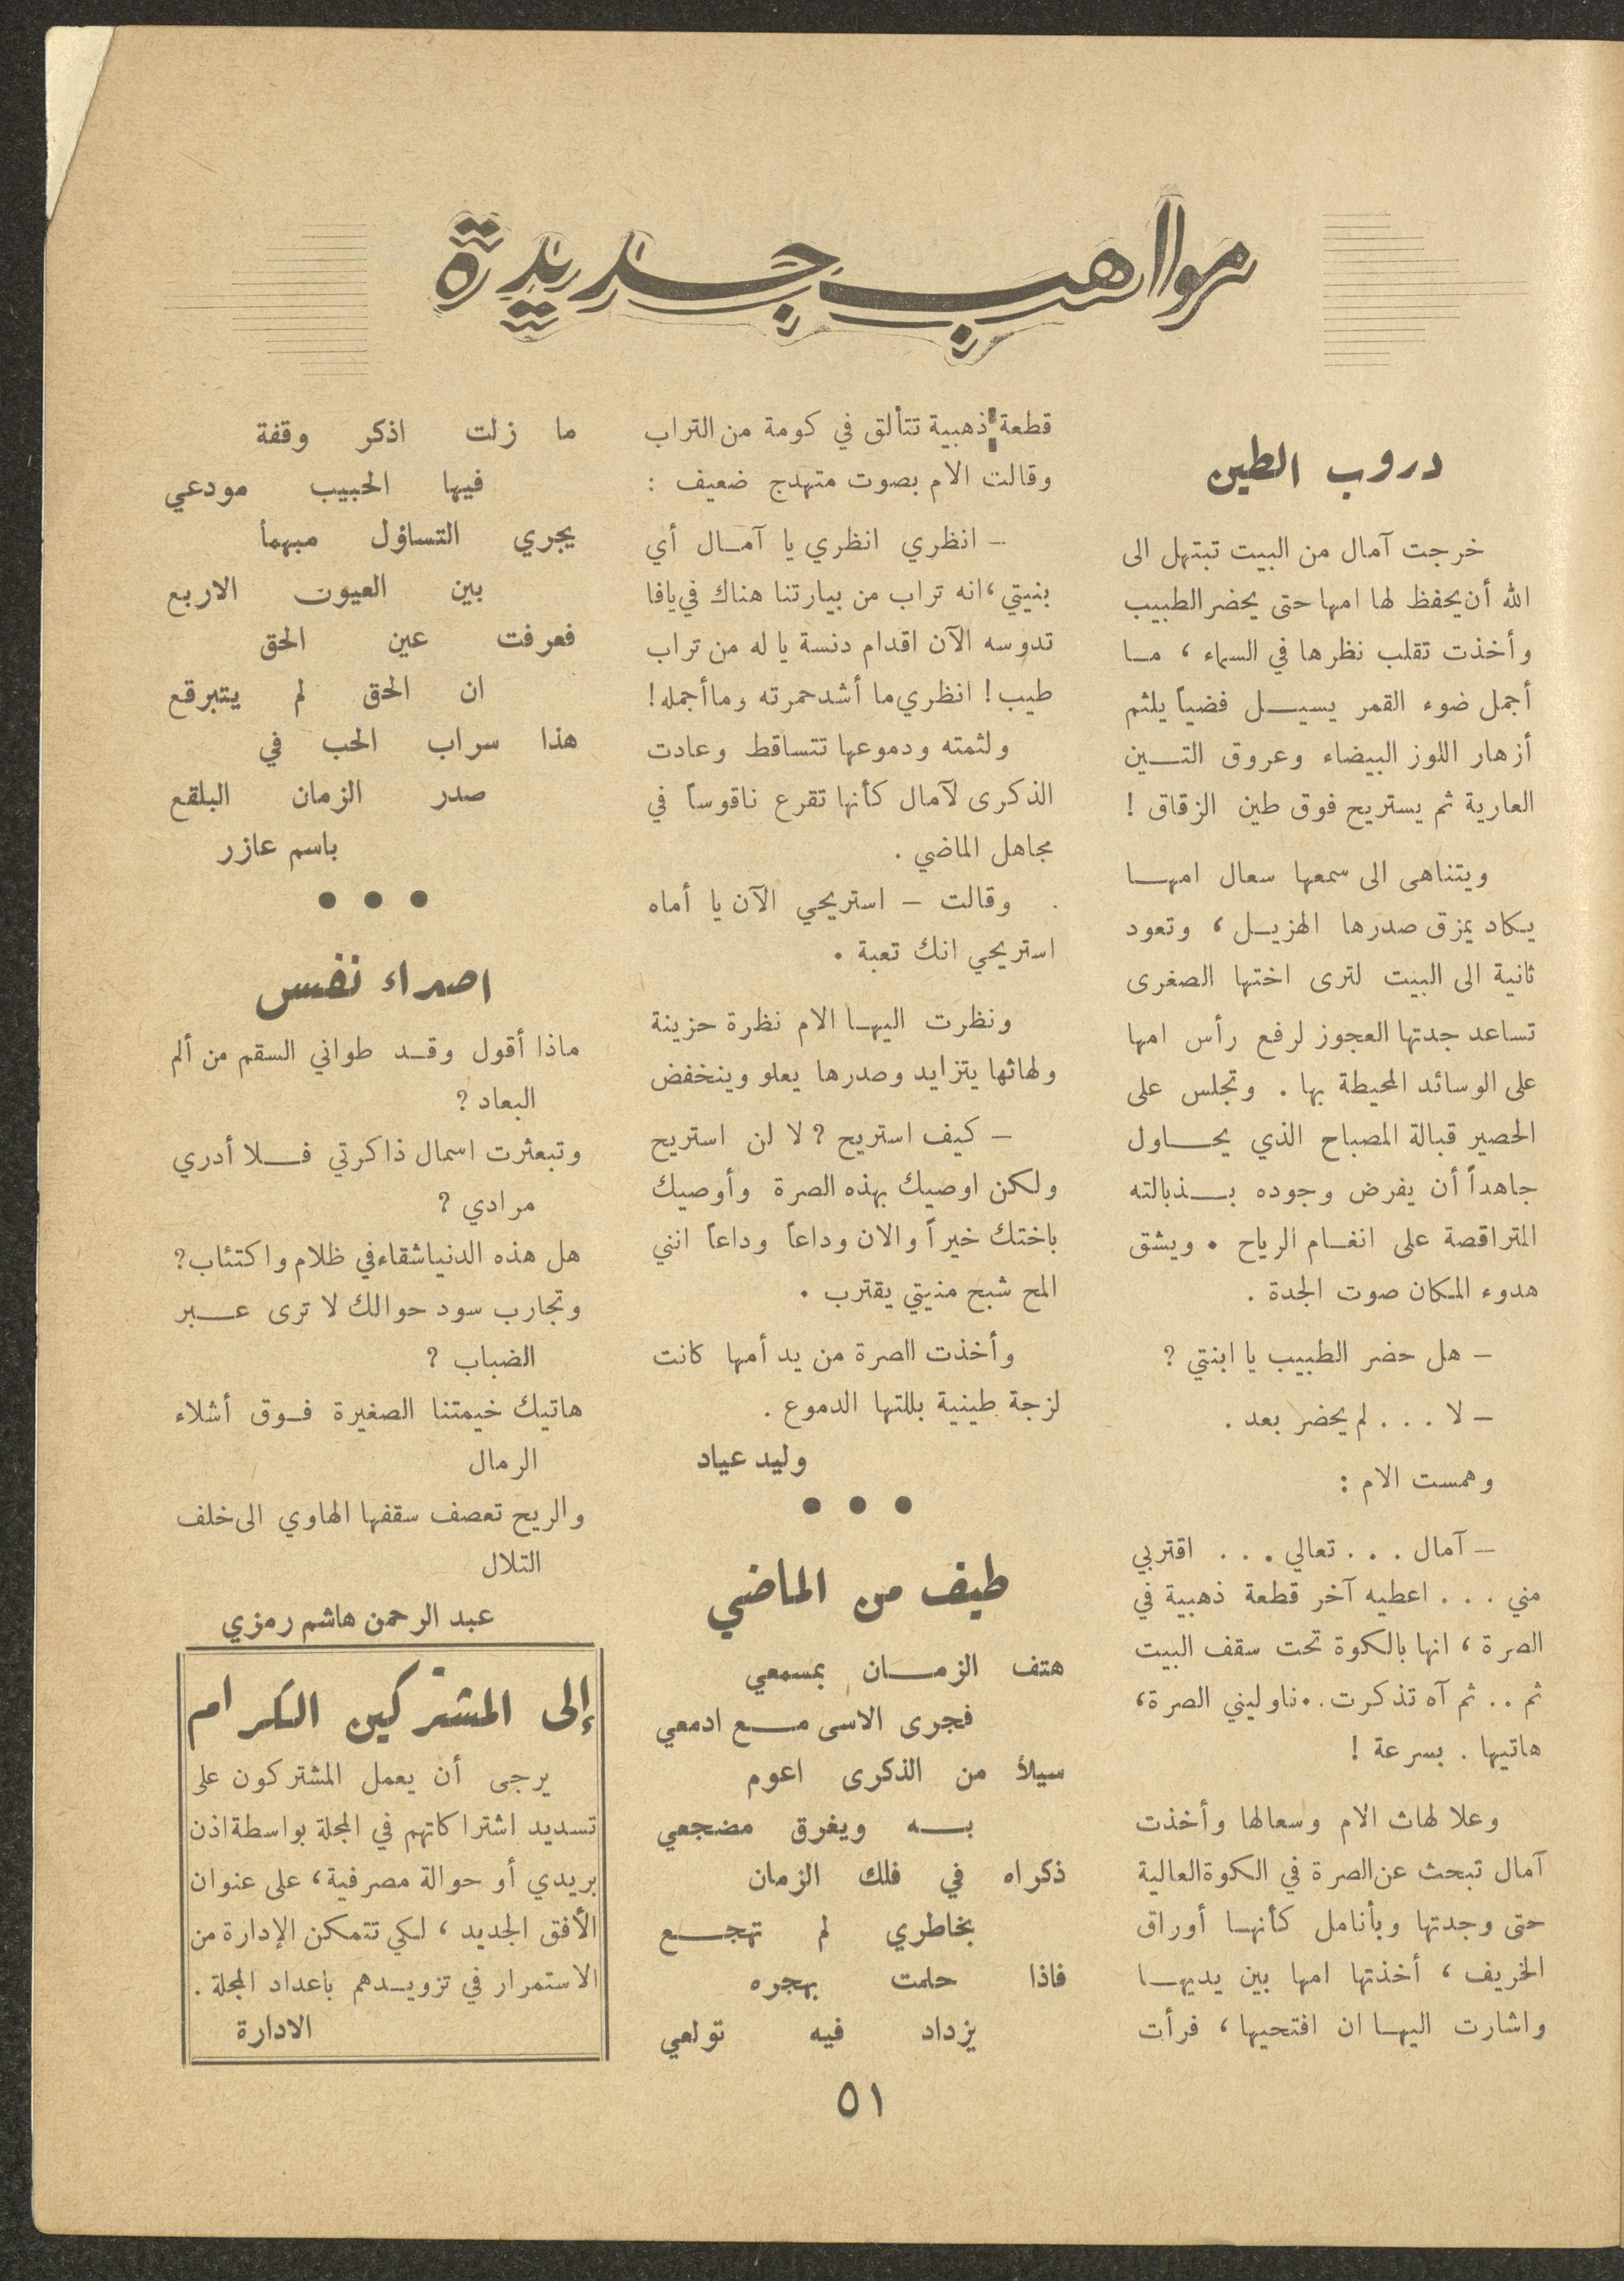 مواهب جديدة
دروب الطين
خرجت آمال من البيت تبتهل الى
الله أن يحفظ لها امها حتى يحضر الطبيب
وأخذت تقلب نظرها في السماء ، مـا
أجمل ضوء القمر يسيـــل فضياً يلثم
أزهار اللوز البيضاء وعروق التـــين
العارية ثم يستريح فوق طين الزقاق !
ويتناهى الى سمعها سعال امهـــا
يـكاد يمزق صدرها الهزيـــل ، وتعود
ثانية الى البيت لترى اختها الصغرى
تساعد جدتها العجوز لرفع رأس امها
على الوسائد المحيطة بها . وتجلس على
الحصير قبالة المصباح الذي يحـــاول
جاهداً أن يفرض وجوده بـــذبالته
المتراقصة على انغـــام الرياح . ويشق
هدوء المكان صوت الجدة .
– هل حضر الطبيب يا ابنتي ؟
– لا . . . لم يحضر بعد .
وهمست الام :
– آمال . . . تعالي . . . اقتربي
مني . . . اعطيه آخر قطعة ذهبية في
الصرة ، انها بالكوة تحت سقف البيت
ثم . . ثم آه تذكرت . . ناوليني الصرة ،
هاتيها . بسرعة !
وعلا لهاث الام وسعالها وأخذت
آمال تبحث عن الصرة في الكوة العالية
حتى وجدتها وبأنامل كأنهـــا أوراق
الخريف ، أخذتها امها بين يديهـــا
واشارت اليهـــا ان افتحيها ، فرأت
قطعة ذهبية تتألق في كومة من التراب
وقالت الام بصوت متهدج ضعيف :
– انظري انظري يا آمـــال أي
بنيتي ، انه تراب من بيارتنا هناك في يافا
تدوسه الآن اقدام دنسة يا له من تراب
طيب ! انظري ما أشد حمرته وما أجمله !
ولثمته ودموعها تتساقط وعادت
الذكرى لآمال كأنها تقرع ناقوساً في
مجاهل الماضي .
. وقالت – استريحي الآن يا أماه
استريحي انك تعبة .
ونظرت اليهـــا الام نظرة حزينة
ولهاثها يتزايد وصدرها يعلو وينخفض
– كيف استريح ؟ لا لن استريح
ولكن اوصيك بهذه الصرة وأوصيك
باختك خيراً والان وداعاً وداعاً انني
المح شبح منيتي يقترب .
وأخذت الصرة من يد أمها كانت
لزجة طينية بللتها الدموع .
وليد عياد
● ● ●
طيف من الماضي
هتف الزمـــان بمسمعي
فجرى الاسى مـــع ادمعي
سيلاً من الذكرى اعوم
بـــه ويغرق مضجعي
ذكراه في فلك الزمان
بخاطري لم تهجـــع
فاذا حلمت بهجره
يزداد فيه تولعي
ما زلت اذكر وقفة
فيها الحبيب مودعي
يجري التساؤل مبهماً
بين العيون الاربع
فعرفت عين الحق
ان الحق لم يتبرقع
هذا سراب الحب في
صدر الزمان البلقع
باسم عازر
● ● ●
اصداء نفس
ماذا أقول وقـــد طواني السقم من ألم
البعاد ؟
وتبعثرت اسمال ذاكرتي فـــلا أدري
مرادي ؟
هل هذه الدنيا شقاء في ظلام واكتئاب ؟
وتجارب سود حوالك لا ترى عـــبر
الضباب ؟
هاتيك خيمتنا الصغيرة فـــوق أشلاء
الرمال
والريح تعصف سقفها الهاوي الى خلف
التلال
عبد الرحمن هاشم رمزي
إلى المشتركين الكرام
يرجى أن يعمل المشتركون على
تسديد اشتراكاتهم في المجلة بواسطة اذن
بريدي أو حوالة مصرفية ، على عنوان
الأفق الجديد ، لكي تتمكن الإدارة من
الاستمرار في تزويـــدهم باعداد المجلة .
الادارة
٥١